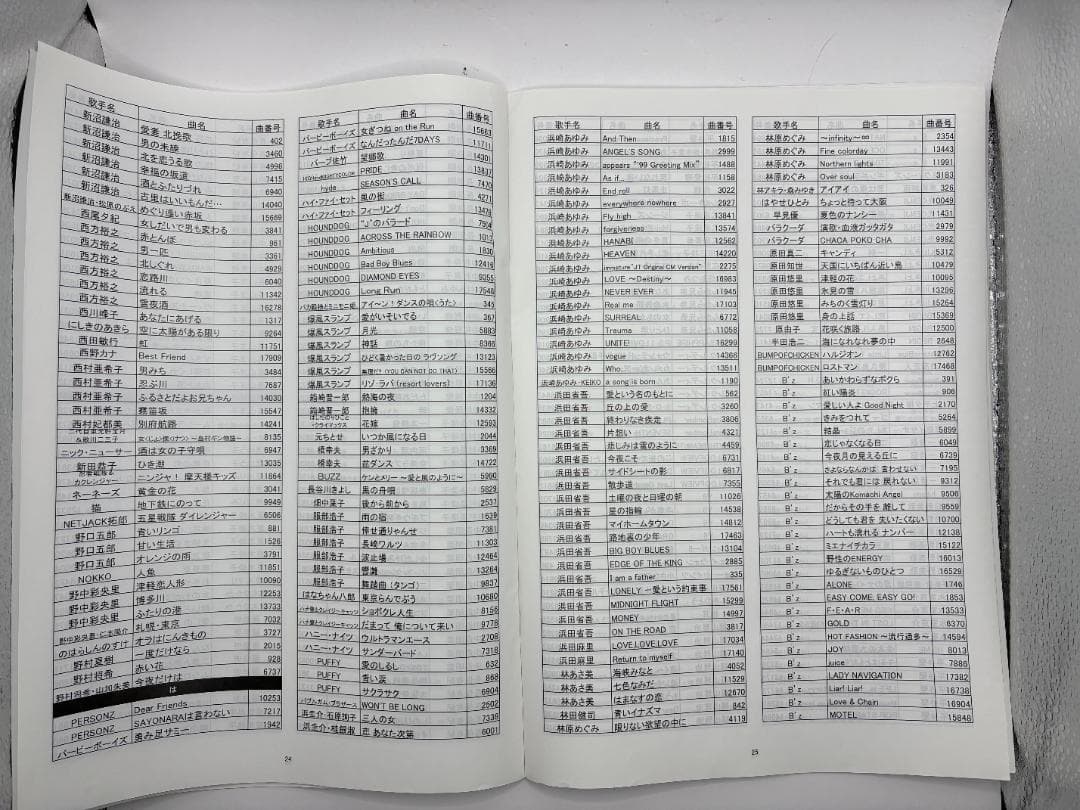 歌手名 曲名 曲番号
新沼謙治 愛妻 北挽歌 402
新沼謙治 男の未練 3460
新沼謙治 北を恋うる歌 4996
新沼謙治 幸福の坂道 7415
新沼謙治 酒とふたりづれ 6940
新沼謙治 古里はいいもんだ… 14040
めぐり逢い赤坂 15669
西尾夕紀 女しだいで男も変わる 3841
西方裕之 赤とんぼ 961
西方裕之 男一匹 3361
西方裕之 北しぐれ 4929
西方裕之 恋路川 6040
西方裕之 流れる 11342
西方裕之 雪夜酒 16278
西川峰子 あなたにあげる 1317
にしきのあきら 空に太陽がある限り 9264
西田敏行 虹 11751
西野カナ Best Friend 17909
西村亜希子 男みち 3484
西村亜希子 忍ぶ川 7687
西村亜希子 ふるさとだよお兄ちゃん 14030
西村亜希子 瓢笛坂 15547
西村妃都美 別府航路 14241
8135
ニック・ニューサー 酒は女の子守唄 6947
新田恭子 ひき潮 13035
カクレンジャー ニンジャ! 摩天楼キッズ 11864
ネーネーズ 黄金の花 3041
猫 地下鉄にのって 9949
NETJACK拓郎 五星戦隊 ダイレンジャー 6506
野口五郎 青いリンゴ 881
野口五郎 甘い生活 1526
野口五郎 オレンジの雨 3791
NOKKO 人魚 11851
野中彩央里 津軽恋人形 10090
野中彩央里 博多川 12253
野中彩央里 ふたりの港 13733
札幌・東京 7032
のはらしんのすけ オラはにんきもの 3727
野村夏樹 一度だけなら 2015
野村将希 赤い花 928
今夜だけは 6737
は
PERSONZ Dear Friends 10253
PERSONZ SAYONARAは言わない 7217
バービーボーイズ 勇み足サミー 1942
歌手名 曲名 曲番号
バービーボーイズ 女ぎつね on the Run 15663
バービーボーイズ なんだったんだ7DAYS 11711
バーブ佐竹 望郷歌 14301
PRIDE 13837
hyde SEASON'S CALL 7470
ハイ・ファイ・セット 風の街 4271
ハイ・ファイ・セット フィーリング 13476
HOUNDDOG "J"のバラード 7504
HOUNDDOG ACROSS THE RAINBOW 1012
HOUNDDOG Ambitious 1830
HOUNDDOG Bad Boy Blues 12414
HOUNDDOG DIAMOND EYES 9055
HOUNDDOG Long Run 17648
アイ〜ン!ダンスの唄〈うた〉 345
爆風スランプ 愛がそいてる 367
爆風スランプ 月光 5883
爆風スランプ 神話 8366
爆風スランプ ひどく暑かった日の ラヴソング 13123
爆風スランプ 無理だ! (YOU CAN NOT DO THAT) 15566
爆風スランプ リゾ・ラバ (resort lovers) 17136
箱崎晋一郎 熱海の夜 1204
箱崎晋一郎 抱擁 14332
花嫁 12593
元ちとせ いつか風になる日 2044
橋幸夫 男ざかり 3369
橋幸夫 花ダンス 14722
BUZZ ケンとメリー 〜愛と風のように〜 5900
長谷川きよし 黒の舟唄 5829
畑中葉子 後から前から 2537
服部浩子 雨の宿 1639
服部浩子 倖せ通りゃんせ 7381
服部浩子 長崎ワルツ 11303
服部浩子 波止場 12464
服部浩子 響灘 13264
服部浩子 舞踏曲(タンゴ) 9837
はなちゃん八郎 東京らんでぶう 10680
ショボクレ人生 8156
だまって 俺について来い 9778
ハニー・ナイツ ウルトラマンエース 2708
ハニー・ナイツ サンダーバード 7318
PUFFY 愛のしるし 632
PUFFY 青い涙 868
PUFFY サクラサク 6904
バブルガム・ブラザーズ WON'T BE LONG 2502
浜圭介・石原詢子 二人の女 7339
浜圭介・桂銀淑 恋 あなた次第 6001
24
歌手名 曲名 曲番号
浜崎あゆみ And Then 1815
浜崎あゆみ ANGEL'S SONG 2999
浜崎あゆみ appears "'99 Greeting Mix" 1488
浜崎あゆみ As if.. 1158
浜崎あゆみ End roll 3022
浜崎あゆみ everywhere nowhere 2927
浜崎あゆみ Fly high 13841
浜崎あゆみ forgiveness 13574
浜崎あゆみ HANABI 12562
浜崎あゆみ HEAVEN 14220
浜崎あゆみ immature"JT Original CM Version" 2275
浜崎あゆみ LOVE 〜Destiny〜 16983
浜崎あゆみ NEVER EVER 11945
浜崎あゆみ Real me 17103
浜崎あゆみ SURREAL 6772
浜崎あゆみ Trauma 11058
浜崎あゆみ UNITE! 16299
浜崎あゆみ vogue 14366
浜崎あゆみ Who.. 13511
浜崎あゆみ・KEIKO a song is born 1190
浜田省吾 愛という名のもとに 562
浜田省吾 丘の上の愛 3260
浜田省吾 終わりなき疾走 3806
浜田省吾 片想い 4321
浜田省吾 悲しみは雪のように 4459
浜田省吾 今夜こそ 6731
浜田省吾 サイドシートの影 6817
浜田省吾 散歩道 7355
浜田省吾 土曜の夜と日曜の朝 11026
浜田省吾 星の指輪 14538
浜田省吾 マイホームタウン 14812
浜田省吾 路地裏の少年 17463
浜田省吾 BIG BOY BLUES 13104
浜田省吾 EDGE OF THE KING 2885
浜田省吾 I am a father 335
浜田省吾 LONELY −愛という約束事 17561
浜田省吾 MIDNIGHT FLIGHT 15299
浜田省吾 MONEY 14997
浜田省吾 ON THE ROAD 3817
浜田麻里 LOVE,LOVE,LOVE 17034
浜田麻里 Return to myself 17140
林あさ美 海峡みなと 4052
林あさ美 七色なみだ 11529
林あさ美 はまなすの恋 12670
林田健司 青いイナズマ 842
林原めぐみ 限りない欲望の中に 4119
歌手名 曲名 曲番号
林原めぐみ 〜infinity〜∞ 2354
林原めぐみ Fine colorday 13443
林原めぐみ Northern lights 11991
林原めぐみ Over soul 3183
林アキラ・森みゆき アイアイ 326
はやせひとみ ちょっと待って大阪 10049
早見優 夏色のナンシー 11431
バラクーダ 演歌・血液ガッタガタ 2979
バラクーダ CHACA POKO CHA 9992
原田真二 キャンディ 5312
原田知世 天国にいちばん近い島 10479
原田悠里 津軽の花 10095
原田悠里 氷見の雪 13296
原田悠里 みちのく雪灯り 15264
原田悠里 身の上話 15369
原由子 花咲く旅路 12500
半田浩二 海になれなれ夢の中 2648
BUMPOFCHICKEN ハルジオン 12762
BUMPOFCHICKEN ロストマン 17468
B'z あいかわらずなボクら 391
B'z 紅い陽炎 900
B'z 愛しい人よ Good Night 2170
B'z きみをつれて 5264
B'z 結晶 5899
B'z 恋じゃなくなる日 6049
B'z 今夜月の見える丘に 6739
B'z さよならなんかは 言わせない 7195
B'z それでも君には 戻れない 9312
B'z 太陽のKomachi Angel 9506
B'z だからその手を 離して 9559
B'z どうしても君を 失いたくない 10700
B'z ハートも濡れる ナンバー 12138
B'z ミエナイチカラ 15122
B'z 野性のENERGY 16013
B'z ゆるぎないものひとつ 16529
B'z ALONE 1746
B'z EASY COME, EASY GO! 1853
B'z F・E・A・R 13533
B'z GOLD 6370
B'z HOT FASHION 〜流行過多〜 14594
B'z JOY 8013
B'z juice 7886
B'z LADY NAVIGATION 17382
B'z Liar! Liar! 16738
B'z Love & Chain 16904
B'z MOTEL 15848
25